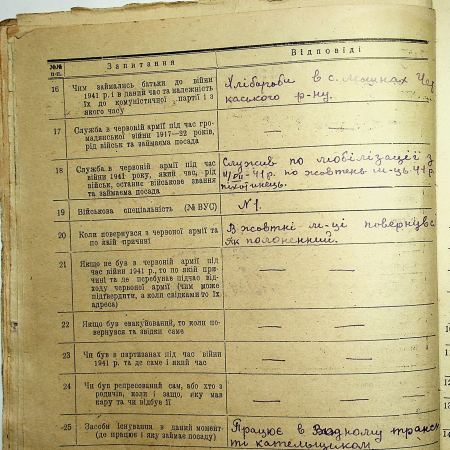 №№ п-п.
Запитання
Відповіді
16
Чим займались батьки до війни
1941 р. і в даний час та належність
їх до комуністичної партії і з
якого часу
Хлібороби в с. Мошнах Чер
каського р-ну.
17
Служба в червоній армії під час гро-
мадянської війни 1917—22 років,
рід військ та займаєма посада
— —
18
Служба в червоній армії під час
війни 1941 року, який час, рід
військ, останнє військове звання
та займаєма посада
Служив по мобілізації з
41 р. по жовтень м-ць 41 р.
піхотинець.
19
Військова спеціяльність (№ ВУС)
№1.
20
Коли повернувся з червоної армії та
по якій причині
В жовтні м-ці повернувсь
як полоненний.
21
Якщо не був в червоній армії під
час війни 1941 р., то по якій при-
чині та де перебував підчас від-
ходу червоної армії (чим може
підтвердити, а коли свідками то їх
адреса)
— —
22
Якщо був евакуйований, то коли по-
вернувся та звідки саме
— —
23
Чи був в партизанах під час війни
1941 р. та де саме і який час
— —
24
Чи був репресований сам, або хто з
родичів, коли і защо, яку мав
кару та чи відбув її
— —
25
Засоби існування в даний момент
(де працює і яку займає посаду)
Працює в Водному транс
ті кательщиком